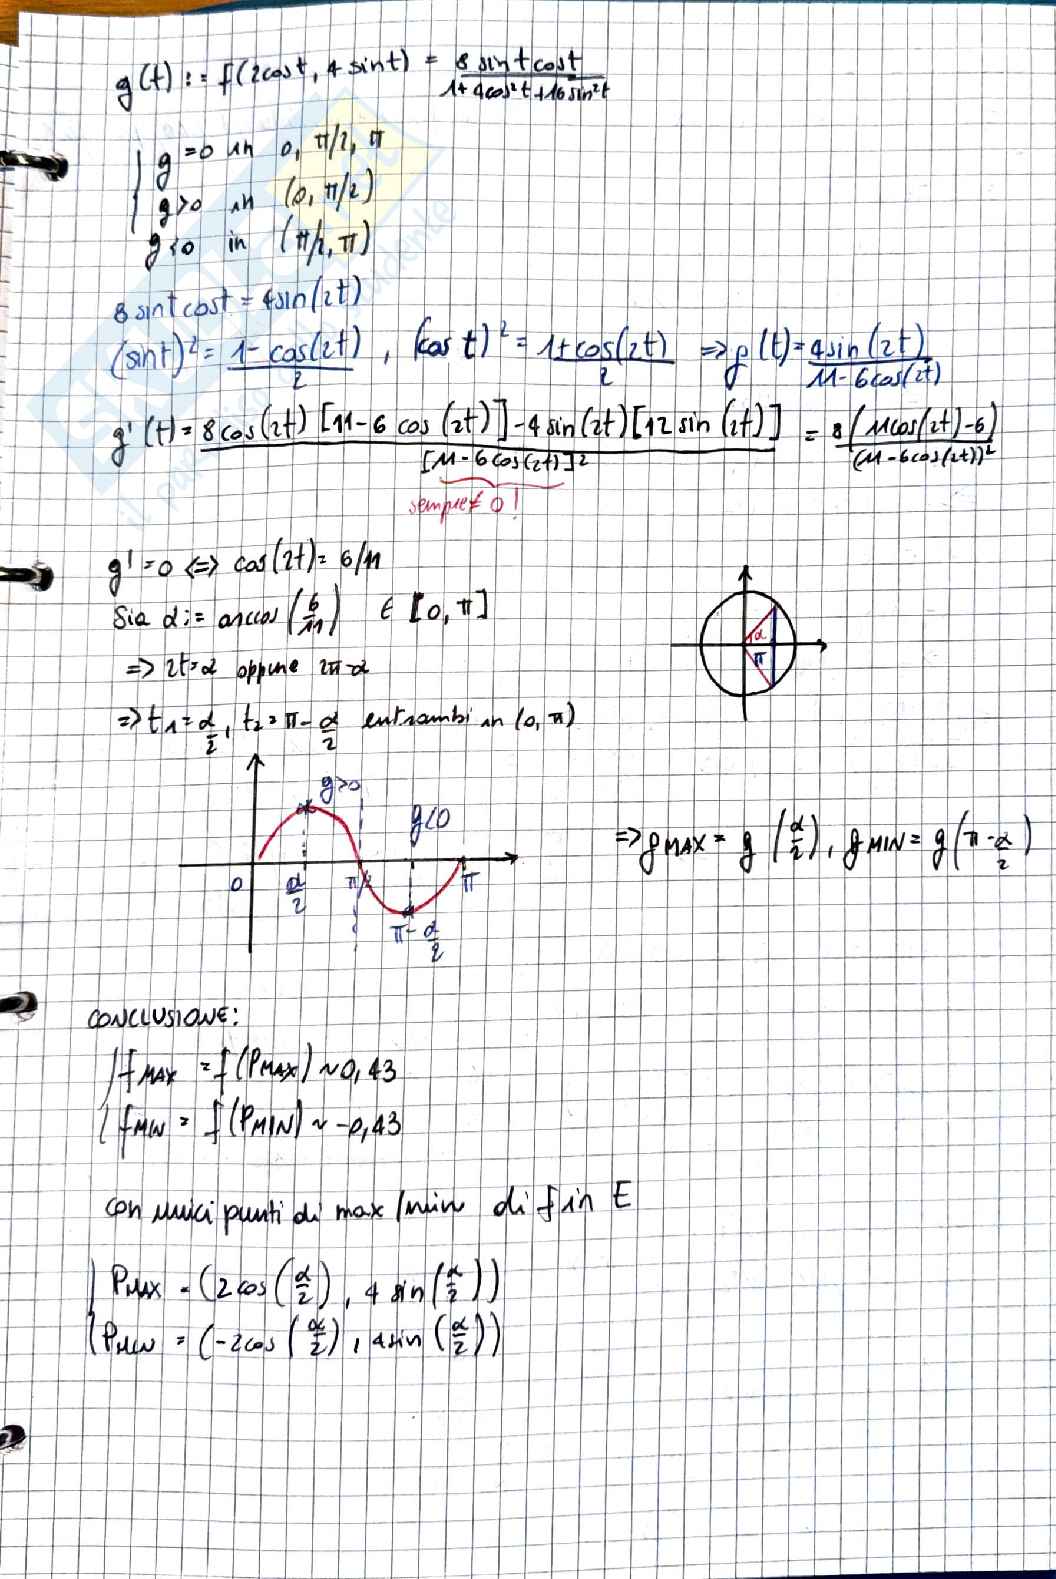 g(t) := f(2cost, 4 sint) = 8 sint cost / 1+4cos²t+16 sin²t
g=0 in 0, π/2, π
g>0 in (0, π/2)
g<0 in (π/2, π)
8 sint cost = 4sin(2t)
(sint)² = 1-cos(2t) / 2 , (cos t)² = 1+cos(2t) / 2 => g(t) = 4sin(2t) / 11-6cos(2t)
g'(t) = 8cos(2t) [11-6 cos(2t)] - 4 sin(2t)[12 sin(2t)] / [11-6cos(2t)]² = 8(11cos(2t)-6) / (11-6cos(2t))²
sempre ≠ 0!
g'=0 <=> cos(2t) = 6/11
Sia α := arccos(6/11) ∈ [0, π]
α
π
=> 2t=α oppure 2π-α
=> t1 = α/2, t2 = π-α/2 entrambi in (0, π)
g>0
g<0
=> gMAX = g(α/2), gMIN = g(π-α/2)
0 α/2 π/2 π
π-α/2
CONCLUSIONE:
fMAX = f(PMAX) ~ 0,43
fMIN = f(PMIN) ~ -0,43
con unici punti di max/min di f in E
PMAX = (2 cos(α/2), 4 sin(α/2))
PMIN = (-2cos(α/2), 4sin(α/2))